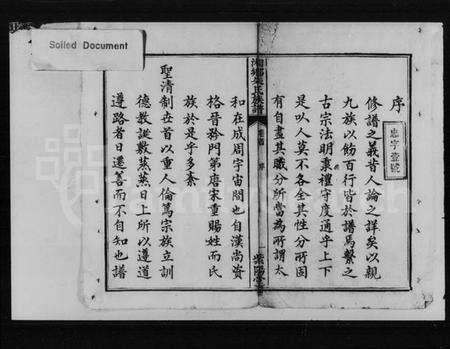 Soiled Document
序
忠字壹號
修譜之義昔人論之詳矣以親
九族以飭百行皆於譜焉繫之
古宗法明喪禮守度通乎上下
是以人莫不各全其性分所固
有自盡其職分所當為所謂太
湘鄉朱氏族譜
序
紫陽堂
和在成周宇宙間也自漢尚資
格晉矜門第唐宋重賜姓而氏
族於是乎多紊
聖清制世首以重人倫篤宗族立訓
德教誕敷蒸蒸日上所以遵道
遵路者日遷善而不自知也譜